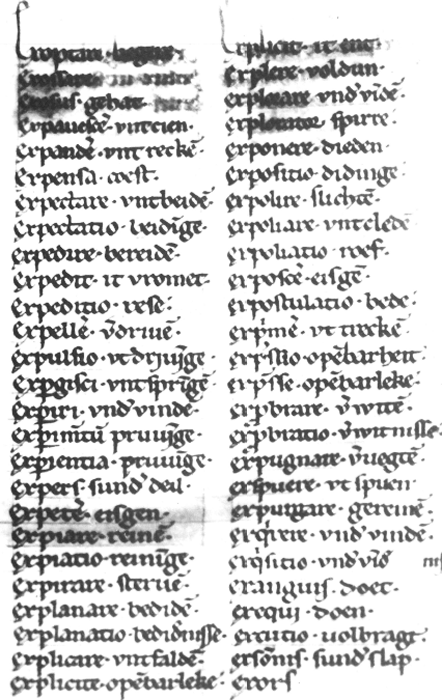 Exoptari
Excusare
Exosus gehat
Expauescē vntcien
Expandē vntreckē
Expensa cost
Expectare vntbeidē
Expectatio beidīge
Expedire bereidē
Expedit it vromet
Expeditio rese
Expellē v̄driuē
Expulsio vtdrijuīge
Expgisci vntsprīgē
Expiri vnd̄ vindē
Expimtū pruuīge
Expientia pruuīge
Expers sund̄ deil
Expetē eisgen
Expiare reinē
Expiatio reinīge
Expirare steruē
Explanare bedidē
Explanatio bedidnisse
Explicare vntfaldē
Explicite opēbarleke
Explicit it ent
Explere voldun
Explorare vnd̄ vidē
Explorator spirre
Exponere dieden
Expositio didinge
Expolire slichtē
Expoliare vntcledē
Expoliatio roef
Exposcē eisgē
Expostulatio bede
Exprimē vt treckē
Exprssio opēbarheit
Exprsse opēbarleke
Exprbrare v̄witē
Exprbratio v̄witnisse
Expugnare v̄uegtē
Expuere vt spuen
Expurgare gereinē
Exqirere vnd̄ vindē
Exqisitio vnd̄ vīd
Exanguis doet
Exequi doen
Excutio uolbragt
Exsōnis sund̄ slap
Exors